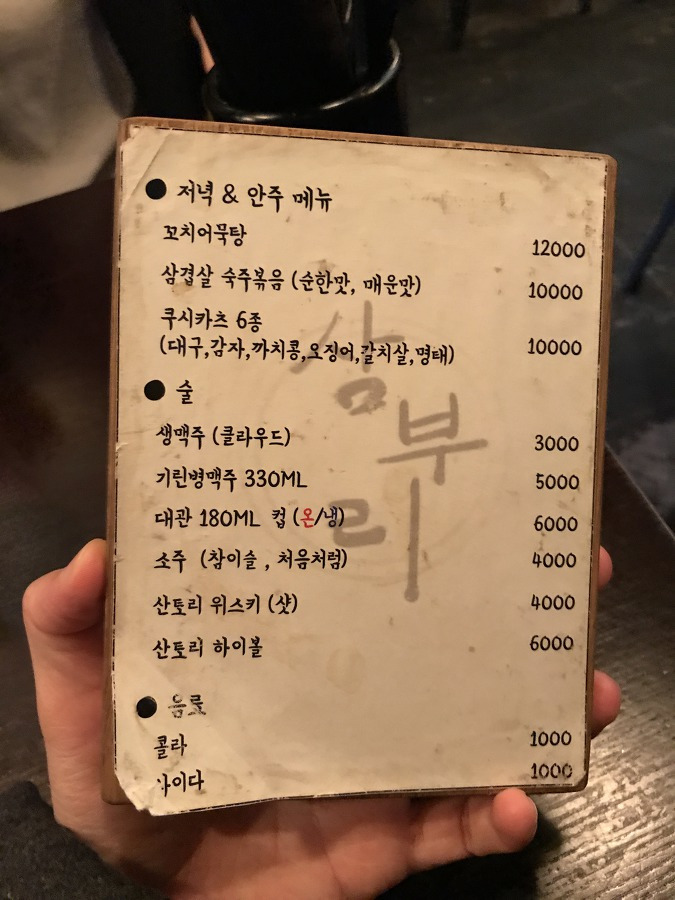 ● 저녁 & 안주 메뉴
꼬치어묵탕 12000
삼겹살 숙주볶음 (순한맛, 매운맛) 10000
쿠시카츠 6종
(대구,감자,까치콩,오징어,갈치살,명태) 10000
● 술
생맥주 (클라우드) 3000
기린병맥주 330ML 5000
대관 180ML 컵 (온/냉) 6000
소주 (참이슬 , 처음처럼) 4000
산토리 위스키 (샷) 4000
산토리 하이볼 6000
● 음료
콜라 1000
사이다 1000
삼
부
리